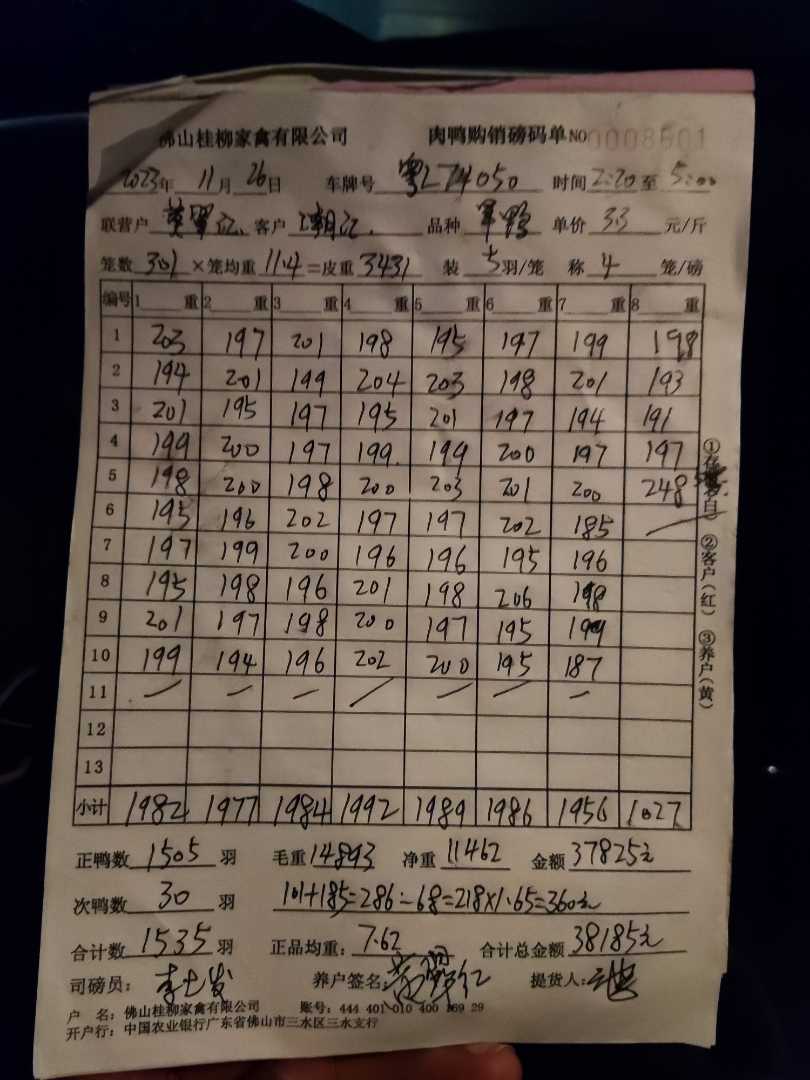 佛山桂柳家禽有限公司 肉鸭购销磅码单 NO 0008601
2023年 11月 26日 车牌号 粤L74050 时间 2:20 至 5:00
联营户 客户 品种 单价 33 元/斤
笼数 301 ×笼均重 11.4 =皮重 3431 装 5 羽/笼 称 4 笼/磅
编号 1 重 2 重 3 重 4 重 5 重 6 重 7 重 8 重
1 203 197 201 198 195 197 199 198
2 194 201 199 204 203 198 201 193
3 201 195 197 195 201 197 194 191
4 199 200 197 199 199 200 197 197
5 198 200 198 200 203 201 200 248
6 195 196 202 197 197 202 185
7 197 199 200 196 196 195 196
8 195 198 196 201 198 206 198
9 201 197 198 200 197 195 199
10 199 194 196 202 200 195 187
11
12
13
小计 1982 1977 1984 1992 1989 1986 1956 1027
①存 白) ②客户(红) ③养户(黄)
正鸭数 1505 羽 毛重 14893 净重 11462 金额 37825元
次鸭数 30 羽 101+185=286-68=218×1.65=360元
合计数 1535 羽 正品均重: 7.62 合计总金额 38185元
司磅员: 养户签名: 提货人:
户 名: 佛山桂柳家禽有限公司 账号: 444 401 010 400 169 29
开户行: 中国农业银行广东省佛山市三水区三水支行